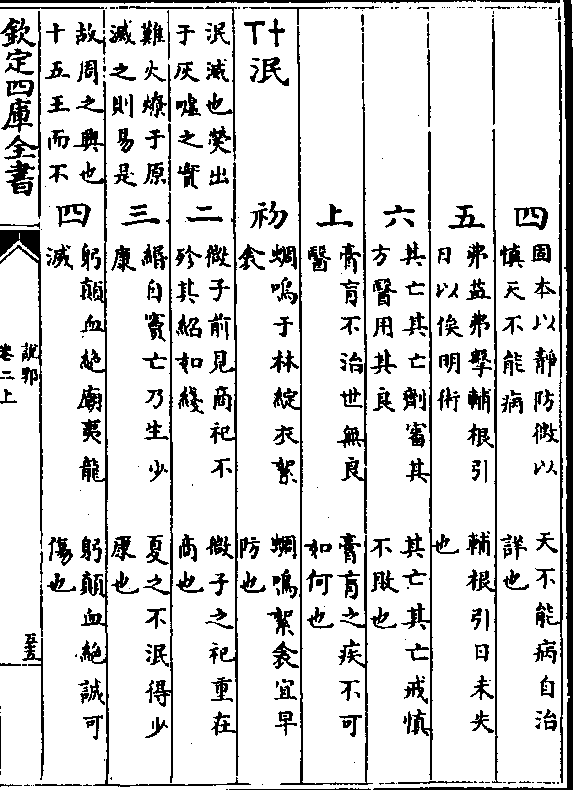 四
固本以靜防微以
慎天不能病
天不能病自治
詳也
五
弗益弗擊輔根引
日以俟明術
輔根引日未失
也
六
其亡其亡劑審其
方醫用其良
其亡其亡戒慎
不敗也
上
膏肓不治世無良
醫
膏肓之疾不可
如何也
丅十泯
初
蜩鳴于林綻衣絮
衾
蜩鳴絮衾宜早
防也
泯滅也熒出
于灰噓之實
二
微子前見商祀不
殄其紹如綫
微子之祀重在
商也
難火燎于原
滅之則易是
三
緡自竇亡乃生少
康
夏之不泯得少
康也
故周之興也
十五王而不
四
躬顛血絕廟夷龍
滅
躬顛血絕誠可
傷也
欽定四庫全書
說郛
卷二上